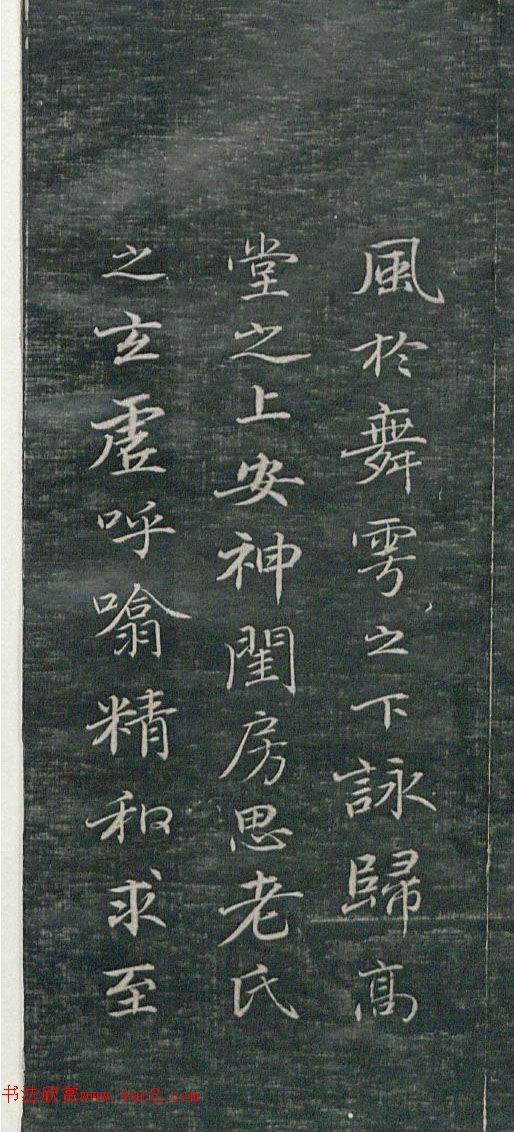 風於舞雩之下詠歸高
堂之上安神閨房思老氏
之玄虛呼噏精和求至
书法欣赏www.yac8.com